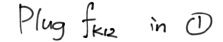 Plug f_{K12} in ①